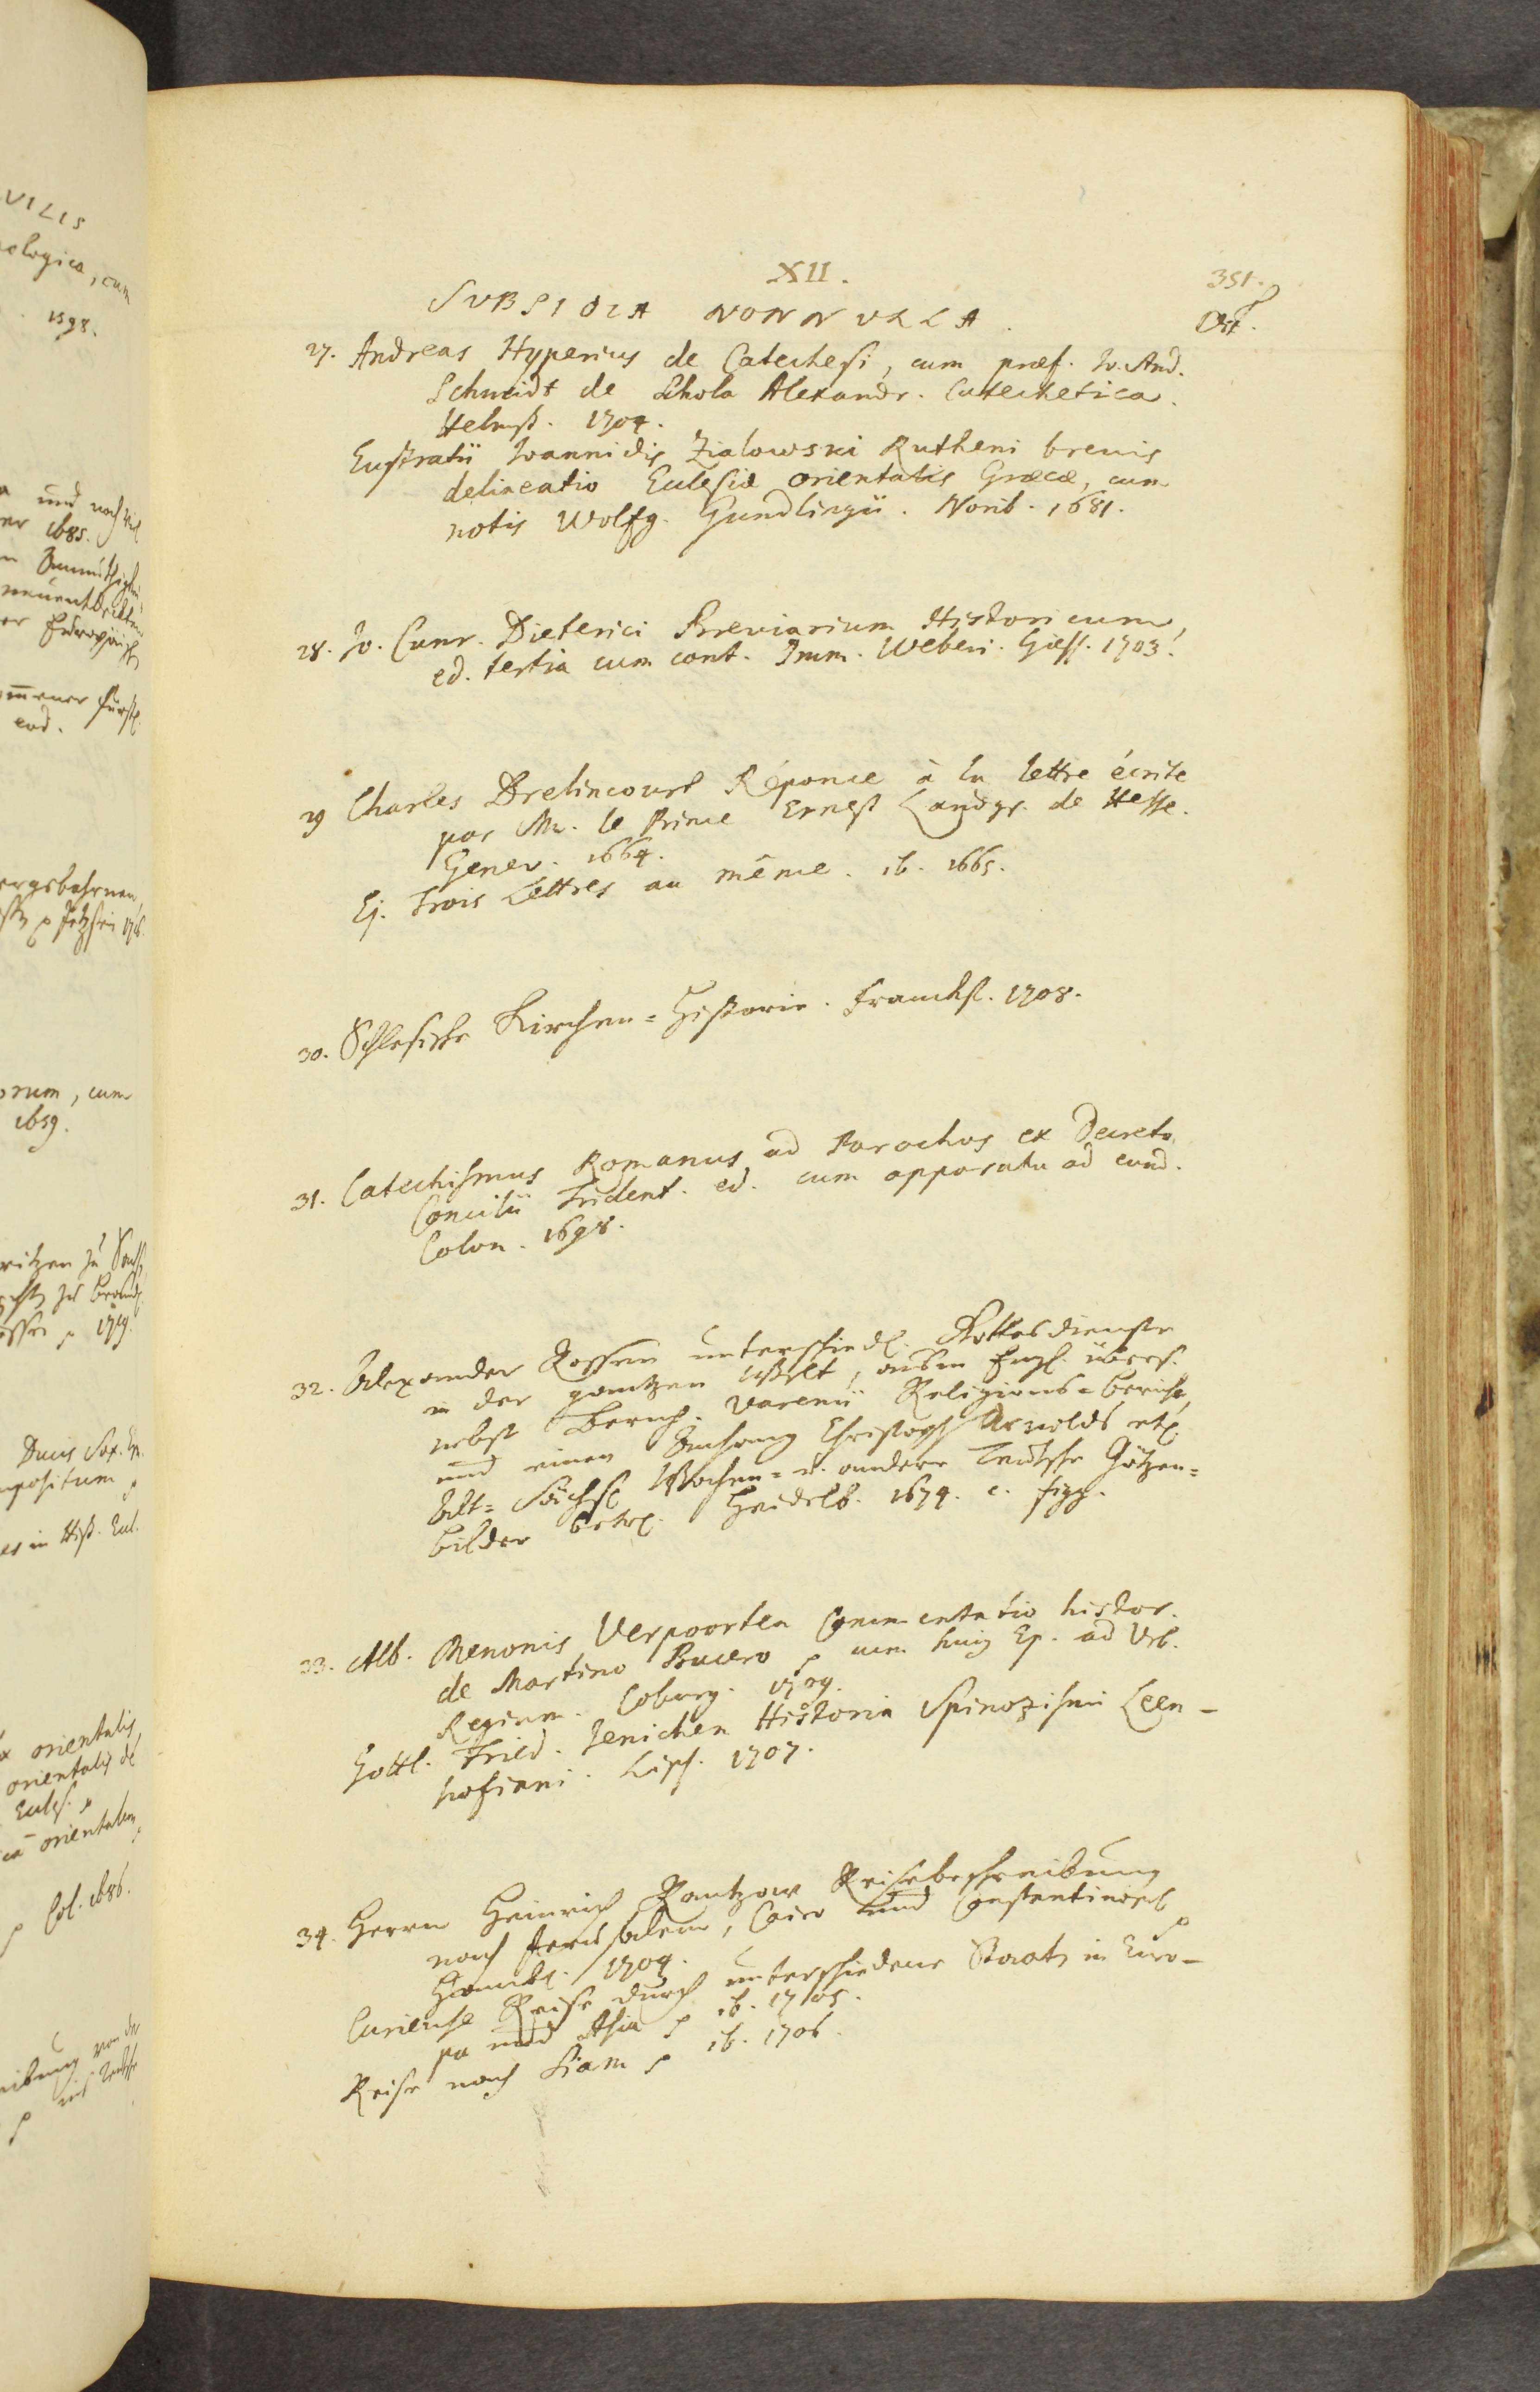 XII.
351.
SUBSIDIA NONNULLA.
Oct.
27. Andreas Hyperius de Catechesi, cum præf. Io. And.
Schmidt de Schola Alexandr. Catechetica.
Helmst. 1704.
Eustratii Ioannidis Zialowski Rutheni brevis
delineatio Ecclesiæ orientalis Græcæ, cum
notis Wolfg. Gundlingii. Norib. 1681.
28. Jo. Cunr. Dieterici Breviarium Historicum,
ed. tertia cum cont. Imm. Weberi. Giess. 1703.
29 Charles Drelincourt Réponce à la lettre écrite
par Mr. le Prince Ernest Landgr. de Hesse.
Genev. 1664.
Ej. Trois Lettres au même. ib. 1665.
30. Schlesische Kirchen-Historie. Franckf. 1708.
31. Catechismus Romanus ad Parochos ex Decreto
Concilii Trident. ed. cum apparatu ad eund.
Colon. 1698.
32. Alexander Rossen unterschiedl. Gottesdienste
in der gantzen Welt, aus dem Engl. übers.
nebst Bernh. Varenii Religions-bericht,
und einen Anhang Christoph Arnolds etl.
Alt-Sächs. Wochen- u. andere Teutsche Götzen-
bilder betr. Heidelb. 1674. c. figg.
33. Alb. Menonis Verpoorten Commentatio histor.
de Martino Bucero cum huig Ep. ad Urb.
Regium. Coburg. 1709.
Gottl. Fried. Jenichen Historia Spinozismi Leen-
hofiani. Lips. 1707.
34. Herrn Heinrich Rantzow Reisebeschreibung
nach Jerusalem, Cairo und Constantinopel
Hamb. 1704.
Curieuse Reise durch unterschiedene Staaten in Euro-
pa und Asia ib. 1705.
Reise nach Siam ib. 1706.
VILIS
ologica, cum
1598.
und nach
1685.
eod.
orum, cum
1659.
1719.
Ducis Sax.
positum
in Hist. Eccl.
orientalis,
orientalis de
Eccles.
orientalem
Col. 1686.